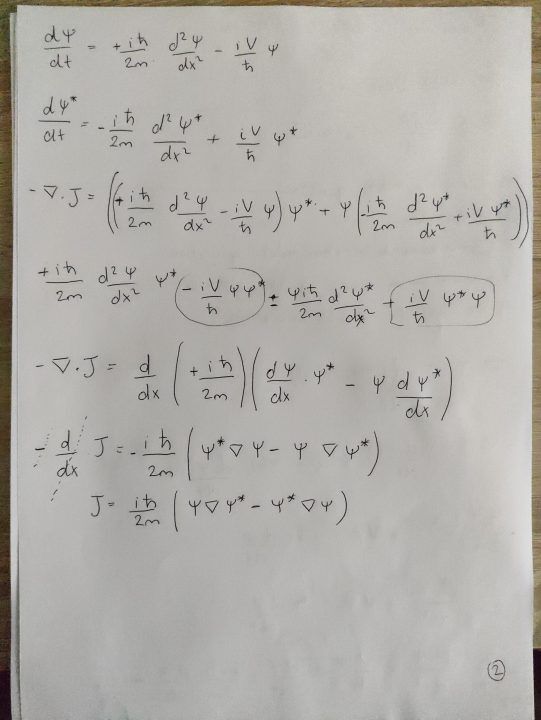 dψ/dt = +iħ/2m d²ψ/dx² - iV/ħ ψ
dψ*/dt = -iħ/2m d²ψ*/dx² + iV/ħ ψ*
-∇·J = ((+iħ/2m d²ψ/dx² - iV/ħ ψ)ψ* + ψ(-iħ/2m d²ψ*/dx² + iVψ*/ħ))
+iħ/2m d²ψ/dx² ψ* - iV/ħ ψψ* - ψiħ/2m d²ψ*/dx² + iV/ħ ψ*ψ
-∇·J = d/dx (+iħ/2m)(dψ/dx · ψ* - ψ dψ*/dx)
- d/dx J = -iħ/2m (ψ*∇ψ - ψ∇ψ*)
J = iħ/2m (ψ∇ψ* - ψ*∇ψ)
2